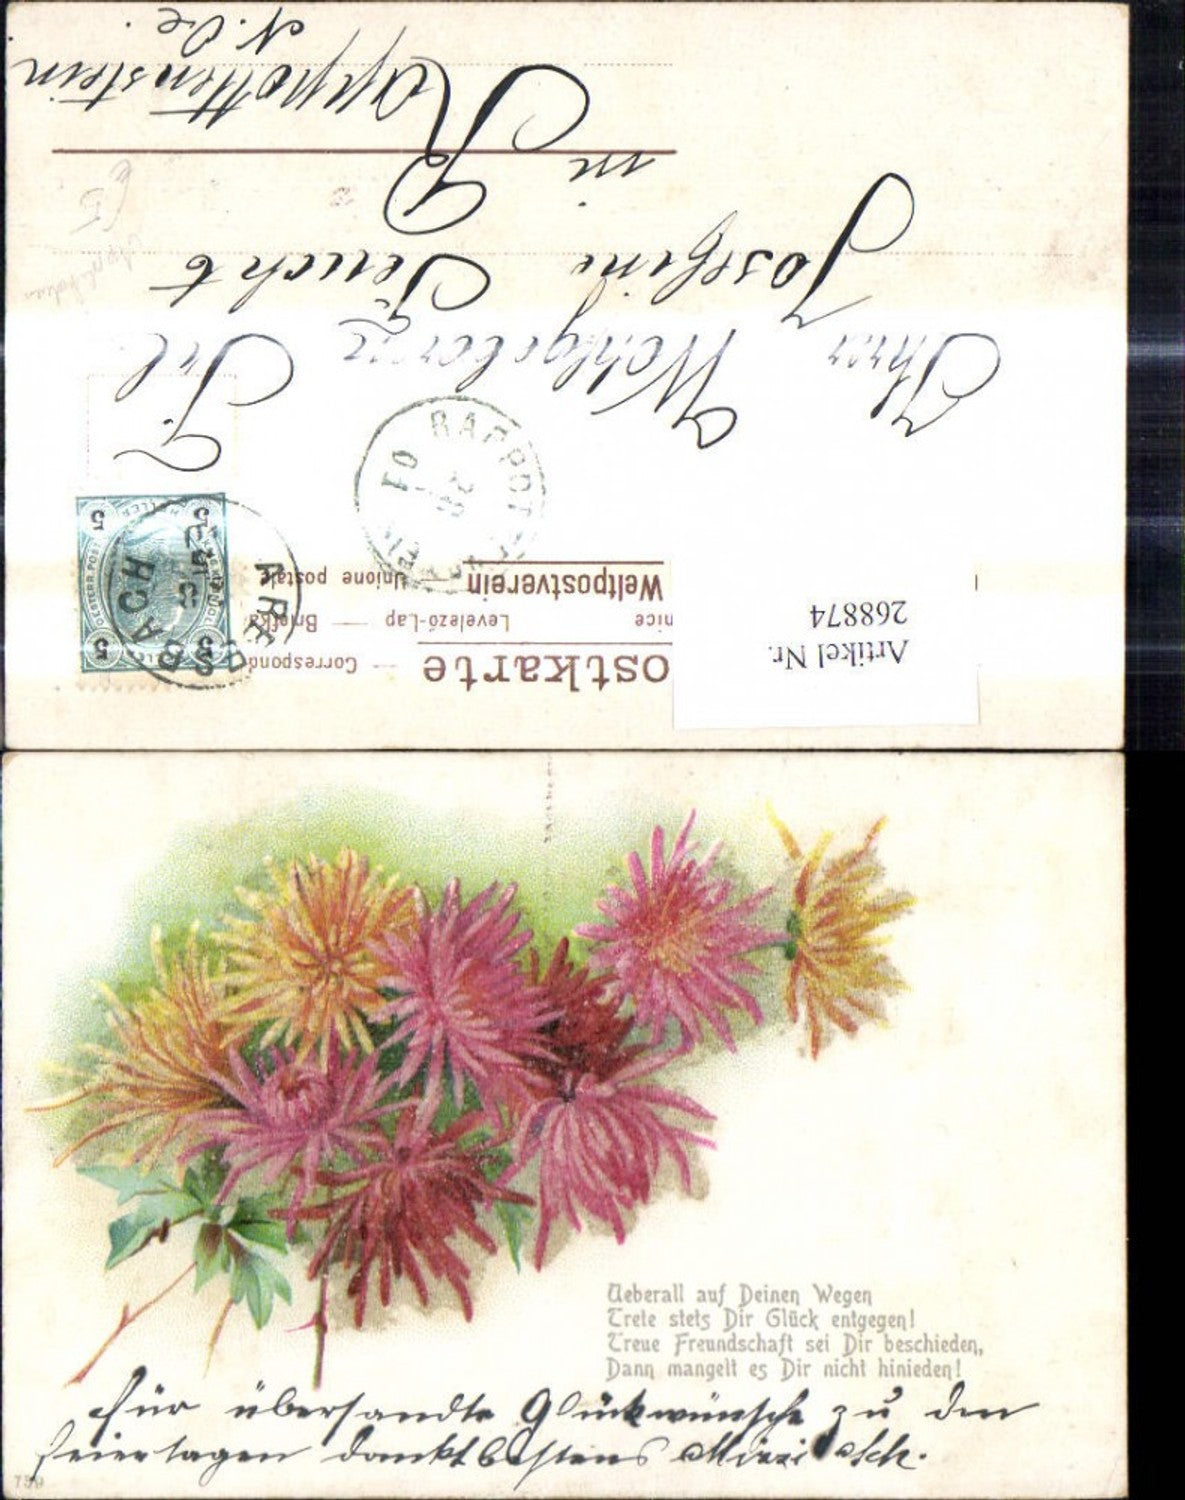 Artikel Nr.
268874
ostkarte
Correspond
nice
Levelező-Lap — Briefka
Weltpostverein
Unione postale
5 5
HELLER
OESTERR. POST
ARBESBACH
RAPPOTTENSTEIN
Ihrer Wohlgeborne Frl
Josefine Feucht
in Rappottenstein
N. Oe.
Ueberall auf Deinen Wegen
Trete stets Dir Glück entgegen!
Treue Freundschaft sei Dir beschieden,
Dann mangelt es Dir nicht hinieden!
für übersandte Glückwünsche zu den
Feiertagen dankt bestens Mizzi Sch.
759